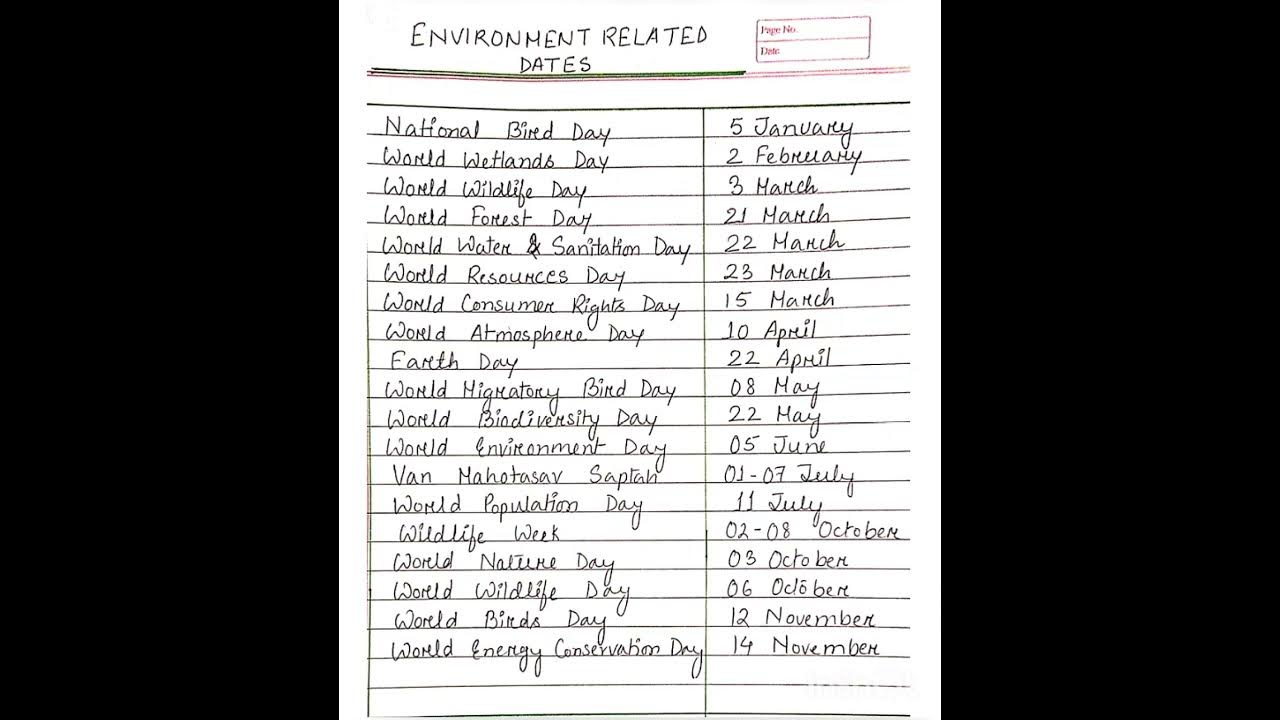 ENVIRONMENT RELATED
DATES
Page No.
Date
National Bird Day 5 January
World Wetlands Day 2 February
World Wildlife Day 3 March
World Forest Day 21 March
World Water & Sanitation Day 22 March
World Resources Day 23 March
World Consumer Rights Day 15 March
World Atmosphere Day 10 April
Earth Day 22 April
World Migratory Bird Day 08 May
World Biodiversity Day 22 May
World Environment Day 05 June
Van Mahotasav Saptah 01-07 July
World Population Day 11 July
Wildlife Week 02-08 October
World Nature Day 03 October
World Wildlife Day 06 October
World Birds Day 12 November
World Energy Conservation Day 14 November